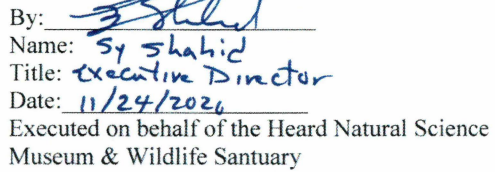 By:
Name: Sy Shahid
Title: Executive Director
Date: 11/24/2020
Executed on behalf of the Heard Natural Science
Museum & Wildlife Santuary